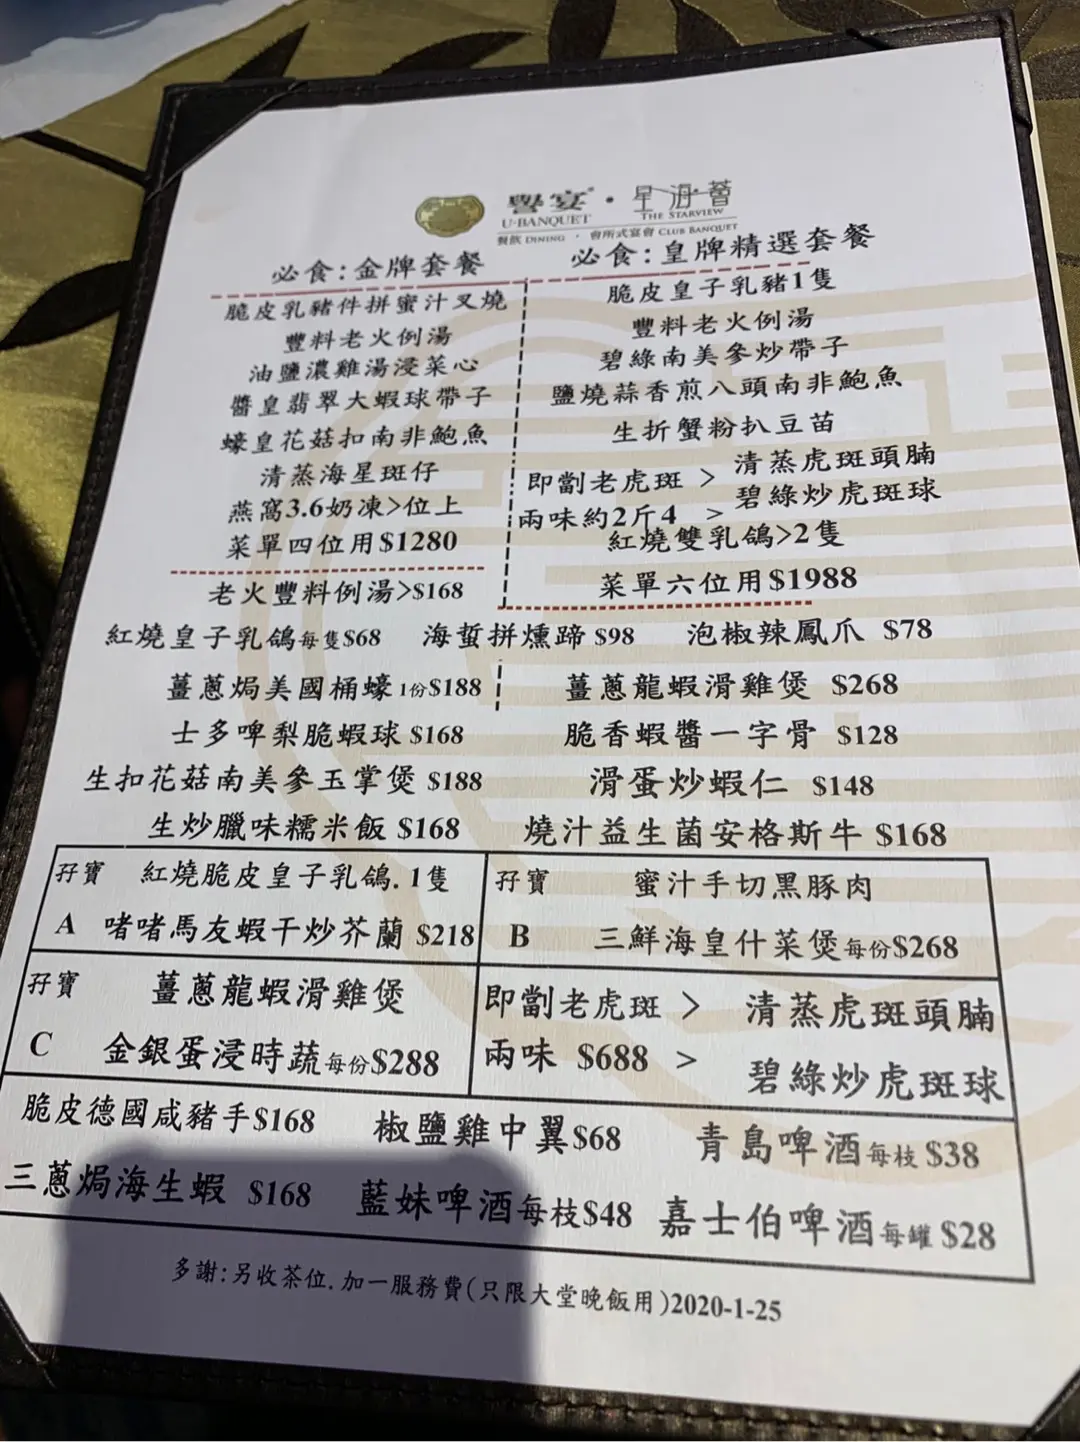 譽宴 · 星海薈
U-BANQUET THE STARVIEW
餐飲 DINING · 會所式宴會 CLUB BANQUET
必食:金牌套餐
脆皮乳豬件拼蜜汁叉燒
豐料老火例湯
油鹽濃雞湯浸菜心
醬皇翡翠大蝦球帶子
蠔皇花菇扣南非鮑魚
清蒸海星斑仔
燕窩3.6奶凍>位上
菜單四位用$1280
老火豐料例湯>$168
必食:皇牌精選套餐
脆皮皇子乳豬1隻
豐料老火例湯
碧綠南美參炒帶子
鹽燒蒜香煎八頭南非鮑魚
生折蟹粉扒豆苗
即劏老虎斑 > 清蒸虎斑頭腩
兩味約2斤4 > 碧綠炒虎斑球
紅燒雙乳鴿>2隻
菜單六位用$1988
紅燒皇子乳鴿每隻$68 海蜇拼燻蹄 $98 泡椒辣鳳爪 $78
薑蔥焗美國桶蠔1份$188 薑蔥龍蝦滑雞煲 $268
士多啤梨脆蝦球 $168 脆香蝦醬一字骨 $128
生扣花菇南美參玉掌煲 $188 滑蛋炒蝦仁 $148
生炒臘味糯米飯 $168 燒汁益生菌安格斯牛 $168
孖寶 紅燒脆皮皇子乳鴿.1隻
A 啫啫馬友蝦干炒芥蘭 $218
孖寶 蜜汁手切黑豚肉
B 三鮮海皇什菜煲每份$268
孖寶 薑蔥龍蝦滑雞煲
C 金銀蛋浸時蔬每份$288
即劏老虎斑 > 清蒸虎斑頭腩
兩味 $688 > 碧綠炒虎斑球
脆皮德國咸豬手$168 椒鹽雞中翼$68 青島啤酒每枝 $38
三蔥焗海生蝦 $168 藍妹啤酒每枝$48 嘉士伯啤酒每罐 $28
多謝:另收茶位.加一服務費(只限大堂晚飯用)2020-1-25